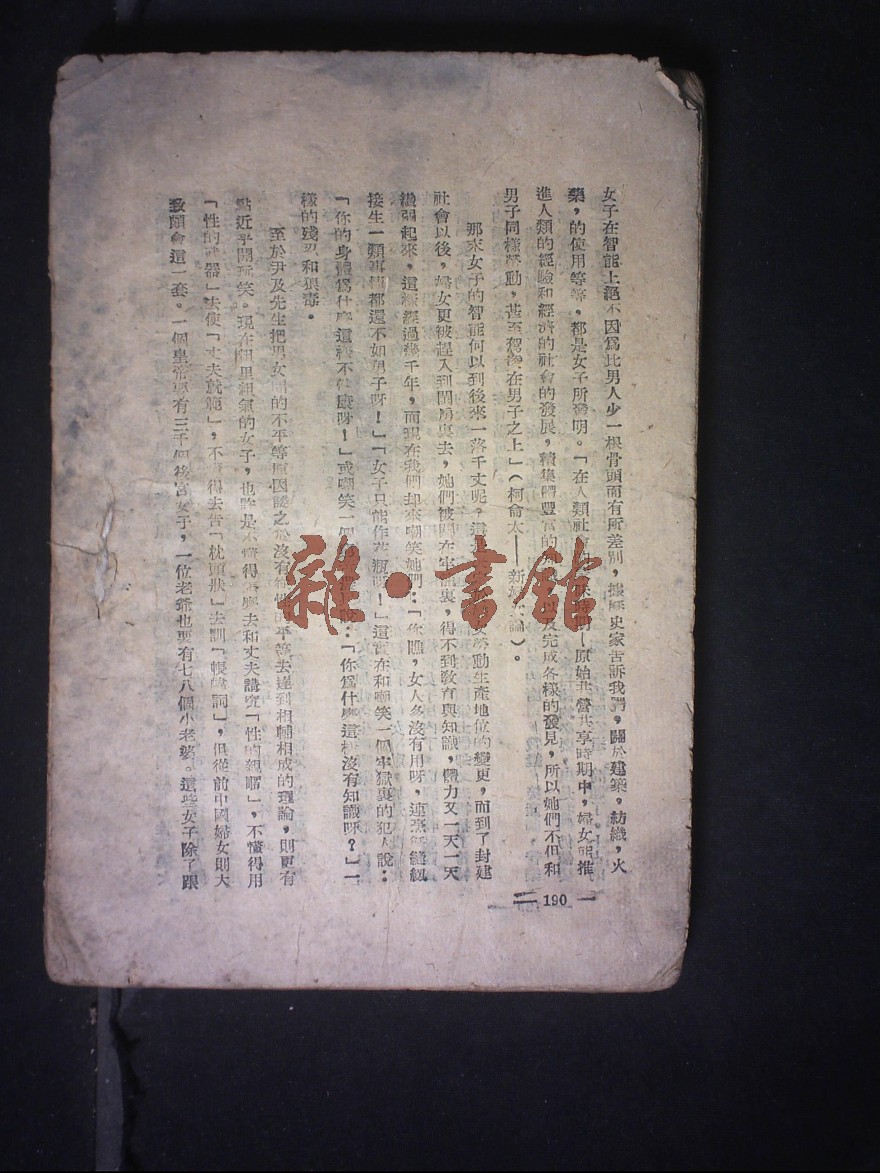 女子在智能上絕不因爲比男人少一根骨頭而有所差別，據歷史家告訴我們，關於建築，紡織，火
藥，的使用等等，都是女子所發明。「在人類社會 原始共營共享時期中，婦女能推
進人類的經驗和經濟的社會的發展，積集體豐富的 以及完成各樣的發見，所以她們不但和
男子同樣勞動，甚至 在男子之上」（柯侖太——新 論）。
那末女子的智能何以到後來一落千丈呢？這 勞動生產地位的變更，而到了封建
社會以後，婦女更被趕入到閨房裏去，她們被關在牢獄裏，得不到敎育與知識，體力又一天一天
纖弱起來，這樣經過幾千年，而現在我們却來嘲笑她們：「你瞧，女人多沒有用呀，連 縫紉
接生一類事情都還不如男子呀！」「女子只能作花瓶呀！」這實在和嘲笑一個牢獄裏的犯人說：
「你的身體爲什麼這樣不健康呀！」或嘲笑一個 ：「你爲什麼這樣沒有知識呀？」一
樣的殘忍和狠毒。
至於尹及先生把男女間的不平等原因諉之於沒有 平等去達到相輔相成的理論，則更有
點近乎開玩笑。現在粗里粗氣的女子，也許是不懂得怎麼去和丈夫講究「性的親暱」，不懂得用
「性的武器」去使「丈夫就範」，不懂得去告「枕頭狀」去訓「帳幃詞」，但從前中國婦女則大
致頗會這一套。一個皇帝要有三千個後宮女子，一位老爺也要有七八個小老婆。這些女子除了跟
190
雜·書館